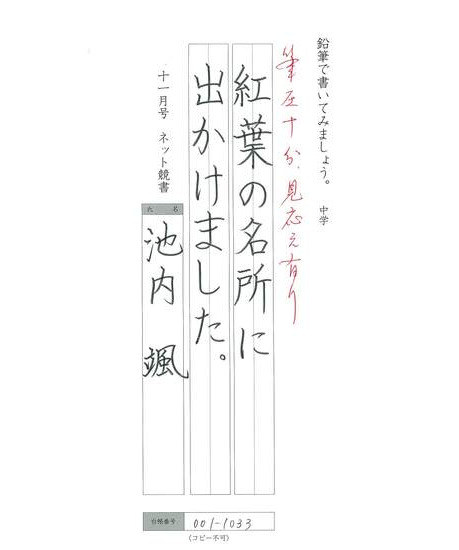 鉛筆で書いてみましょう。 中学
筆圧十分、見応え有り
紅葉の名所に
出かけました。
十一月号 ネット競書
氏 名
池内 颯
台帳番号 001-1033
(コピー不可)